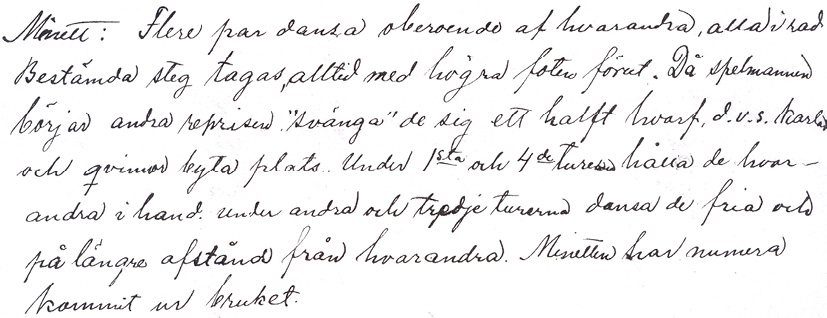 Minett: Flere par dansa oberoende af hvarandra, alla i rad
Bestämda steg tagas, alltid med högra foten förut. Då spelmannen
börjar andra reprisen "svänga" de sig ett halft hvarf, d.v.s. karlar
och qvinnor byta plats. Under 1sta och 4de turerna hålla de hvar-
andra i hand. under andra och tredje turerna dansa de fria och
på längre afstånd från hvarandra. Minetten har numera
kommit ur bruket.